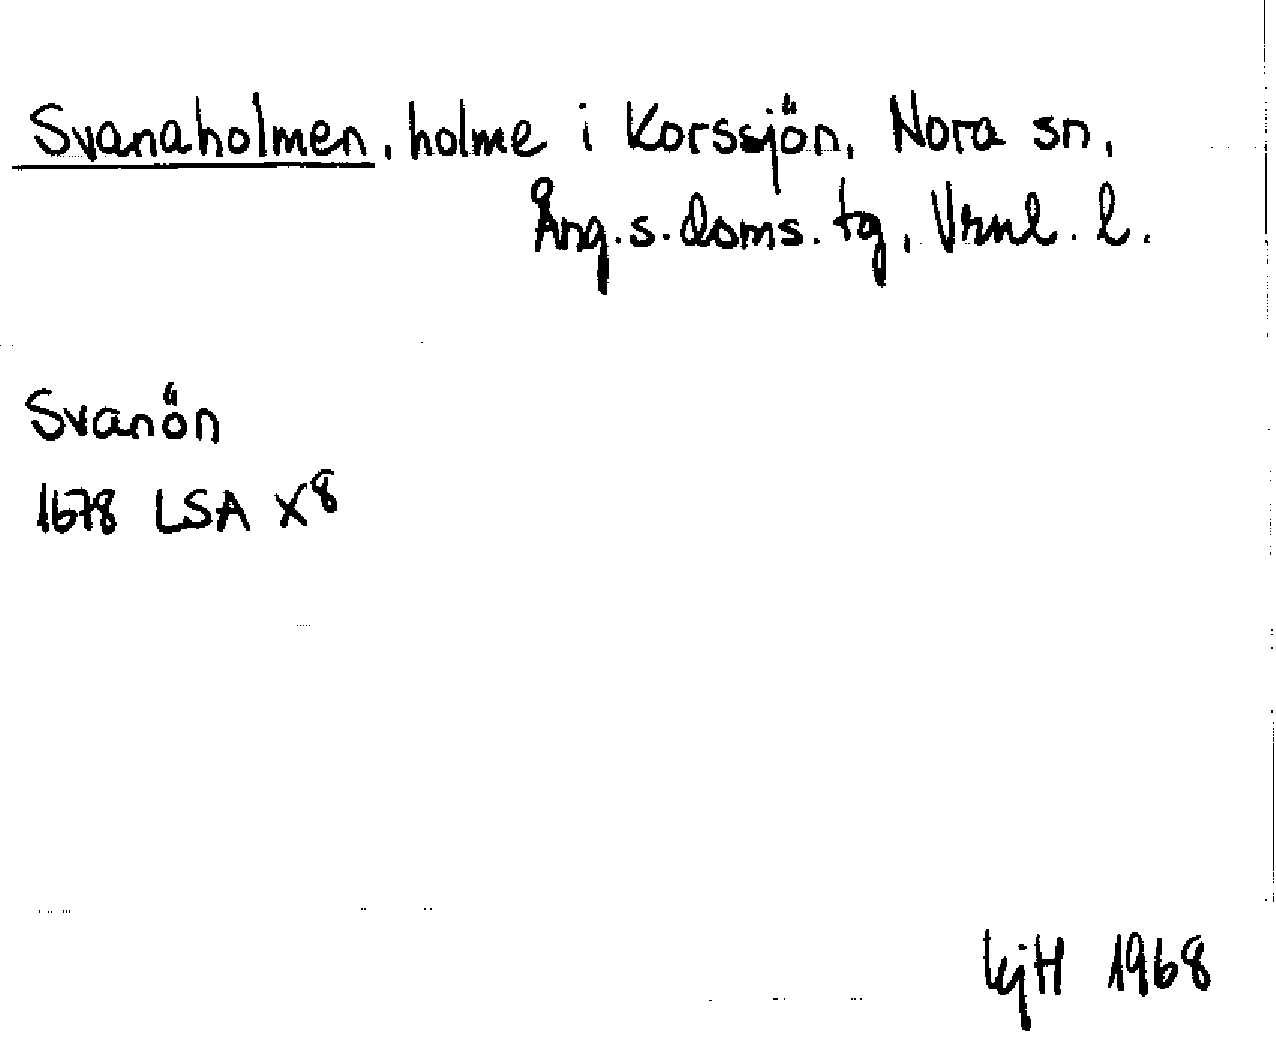 Svanaholmen, holme i Korssjön, Nora sn,
Ång.s.doms.tg, Vrnl. l.
Svanön
1678 LSA X8
kjH 1968